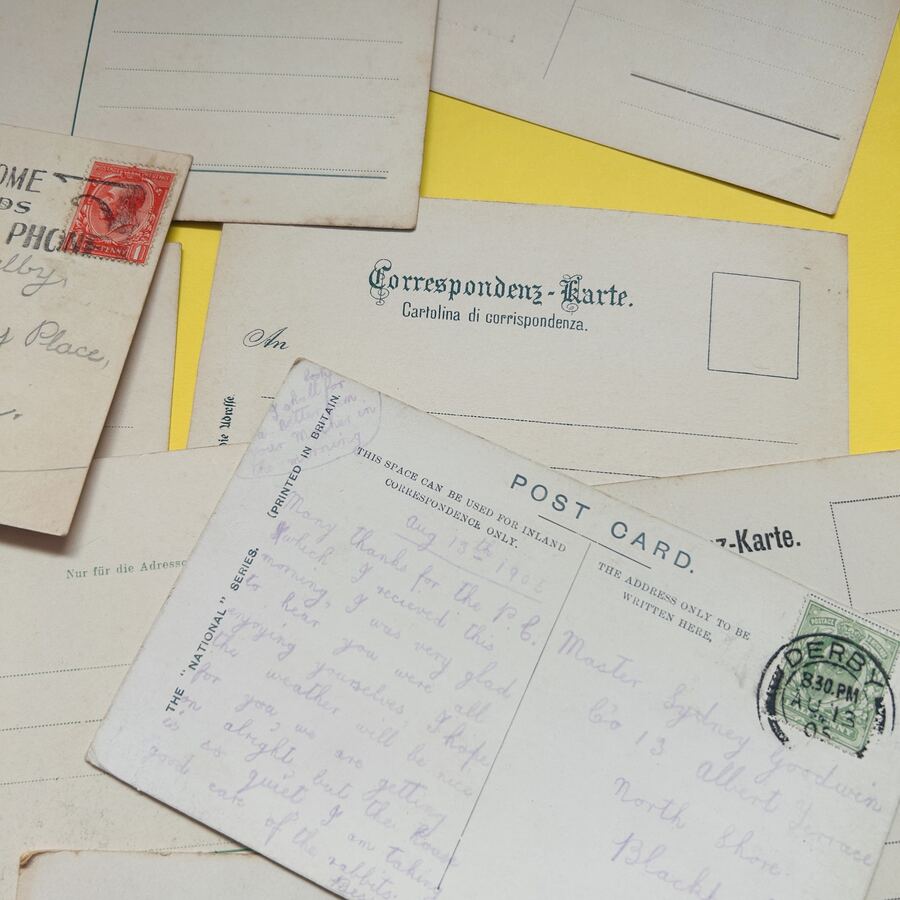 OME
DS
PHONE
PENNY 1
elby,
y Place,
Correspondenz-Karte.
Cartolina di corrispondenza.
An
die Adresse
Nur für die Adresse
z-Karte.
I shall
a letter
your Mother in
the morning
POST CARD.
THIS SPACE CAN BE USED FOR INLAND
CORRESPONDENCE ONLY.
THE ADDRESS ONLY TO BE
WRITTEN HERE,
(PRINTED IN BRITAIN.
THE "NATIONAL" SERIES.
Aug 13th 1905
Many thanks for the p.c.
which I recieved this
morning, I was very glad
to hear you were all
enjoying yourselves, I hope
the weather will be nice
for you, we are getting
on alright but the house
is so quiet I am taking
good care of the rabbits.
Master Sydney Goodwin
Co 13 Albert Terrace
North Shore
Blackp
POSTAGE
DERBY
8.30.PM
AU 13
05